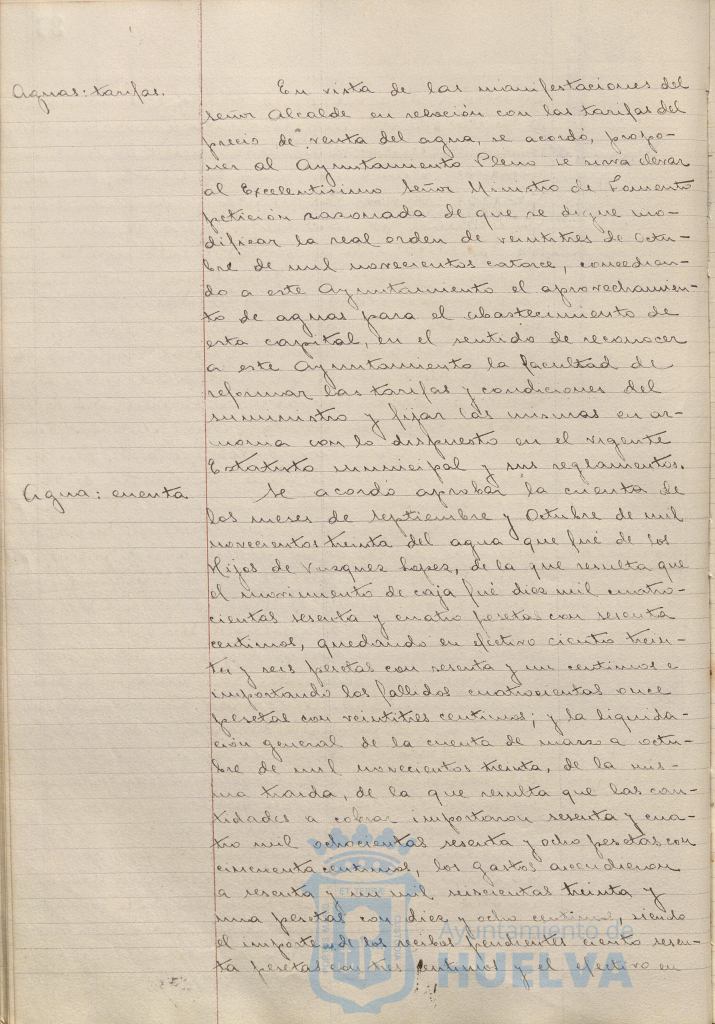 Aguas: tarifas.
En vista de las manifestaciones del
señor Alcalde en relación con las tarifas del
precio de venta del agua, se acordó, propo-
ner al Ayuntamiento Pleno se sirva elevar
al Excelentísimo Señor Ministro de Fomento
petición razonada de que se digne mo-
dificar la real orden de veintitres de Octu-
bre de mil novecientos catorce, concedien-
do a este Ayuntamiento el aprovechamien-
to de aguas para el abastecimiento de
esta capital, en el sentido de reconocer
a este Ayuntamiento la facultad de
reformar las tarifas y condiciones del
suministro y fijar las mismas en ar-
monia con lo dispuesto en el vigente
Estatuto municipal y sus reglamentos.
Agua: cuenta
Se acordó aprobar la cuenta de
los meses de Septiembre y Octubre de mil
novecientos treinta del agua que fué de los
Hijos de Vazquez Lopez, de la que resulta que
el movimiento de caja fué diez mil cuatro-
cientas sesenta y cuatro pesetas con sesenta
centimos, quedando en efectivo ciento trein-
ta y seis pesetas con sesenta y un centimos e
importando los fallidos cuatrocientas once
pesetas con veintitres centimos; y la liquida-
ción general de la cuenta de marzo a octu-
bre de mil novecientos treinta, de la mis-
ma traida, de la que resulta que las can-
tidades a cobrar importaron sesenta y cua-
tro mil ochocientas sesenta y ocho pesetas con
cincuenta centimos, los gastos ascendieron
a sesenta y un mil seiscientas treinta y
una pesetas con diez y ocho centimos, siendo
el importe de los recibos pendientes ciento sesen-
ta pesetas con tres centimos y el efectivo en
Ayuntamiento de
HUELVA